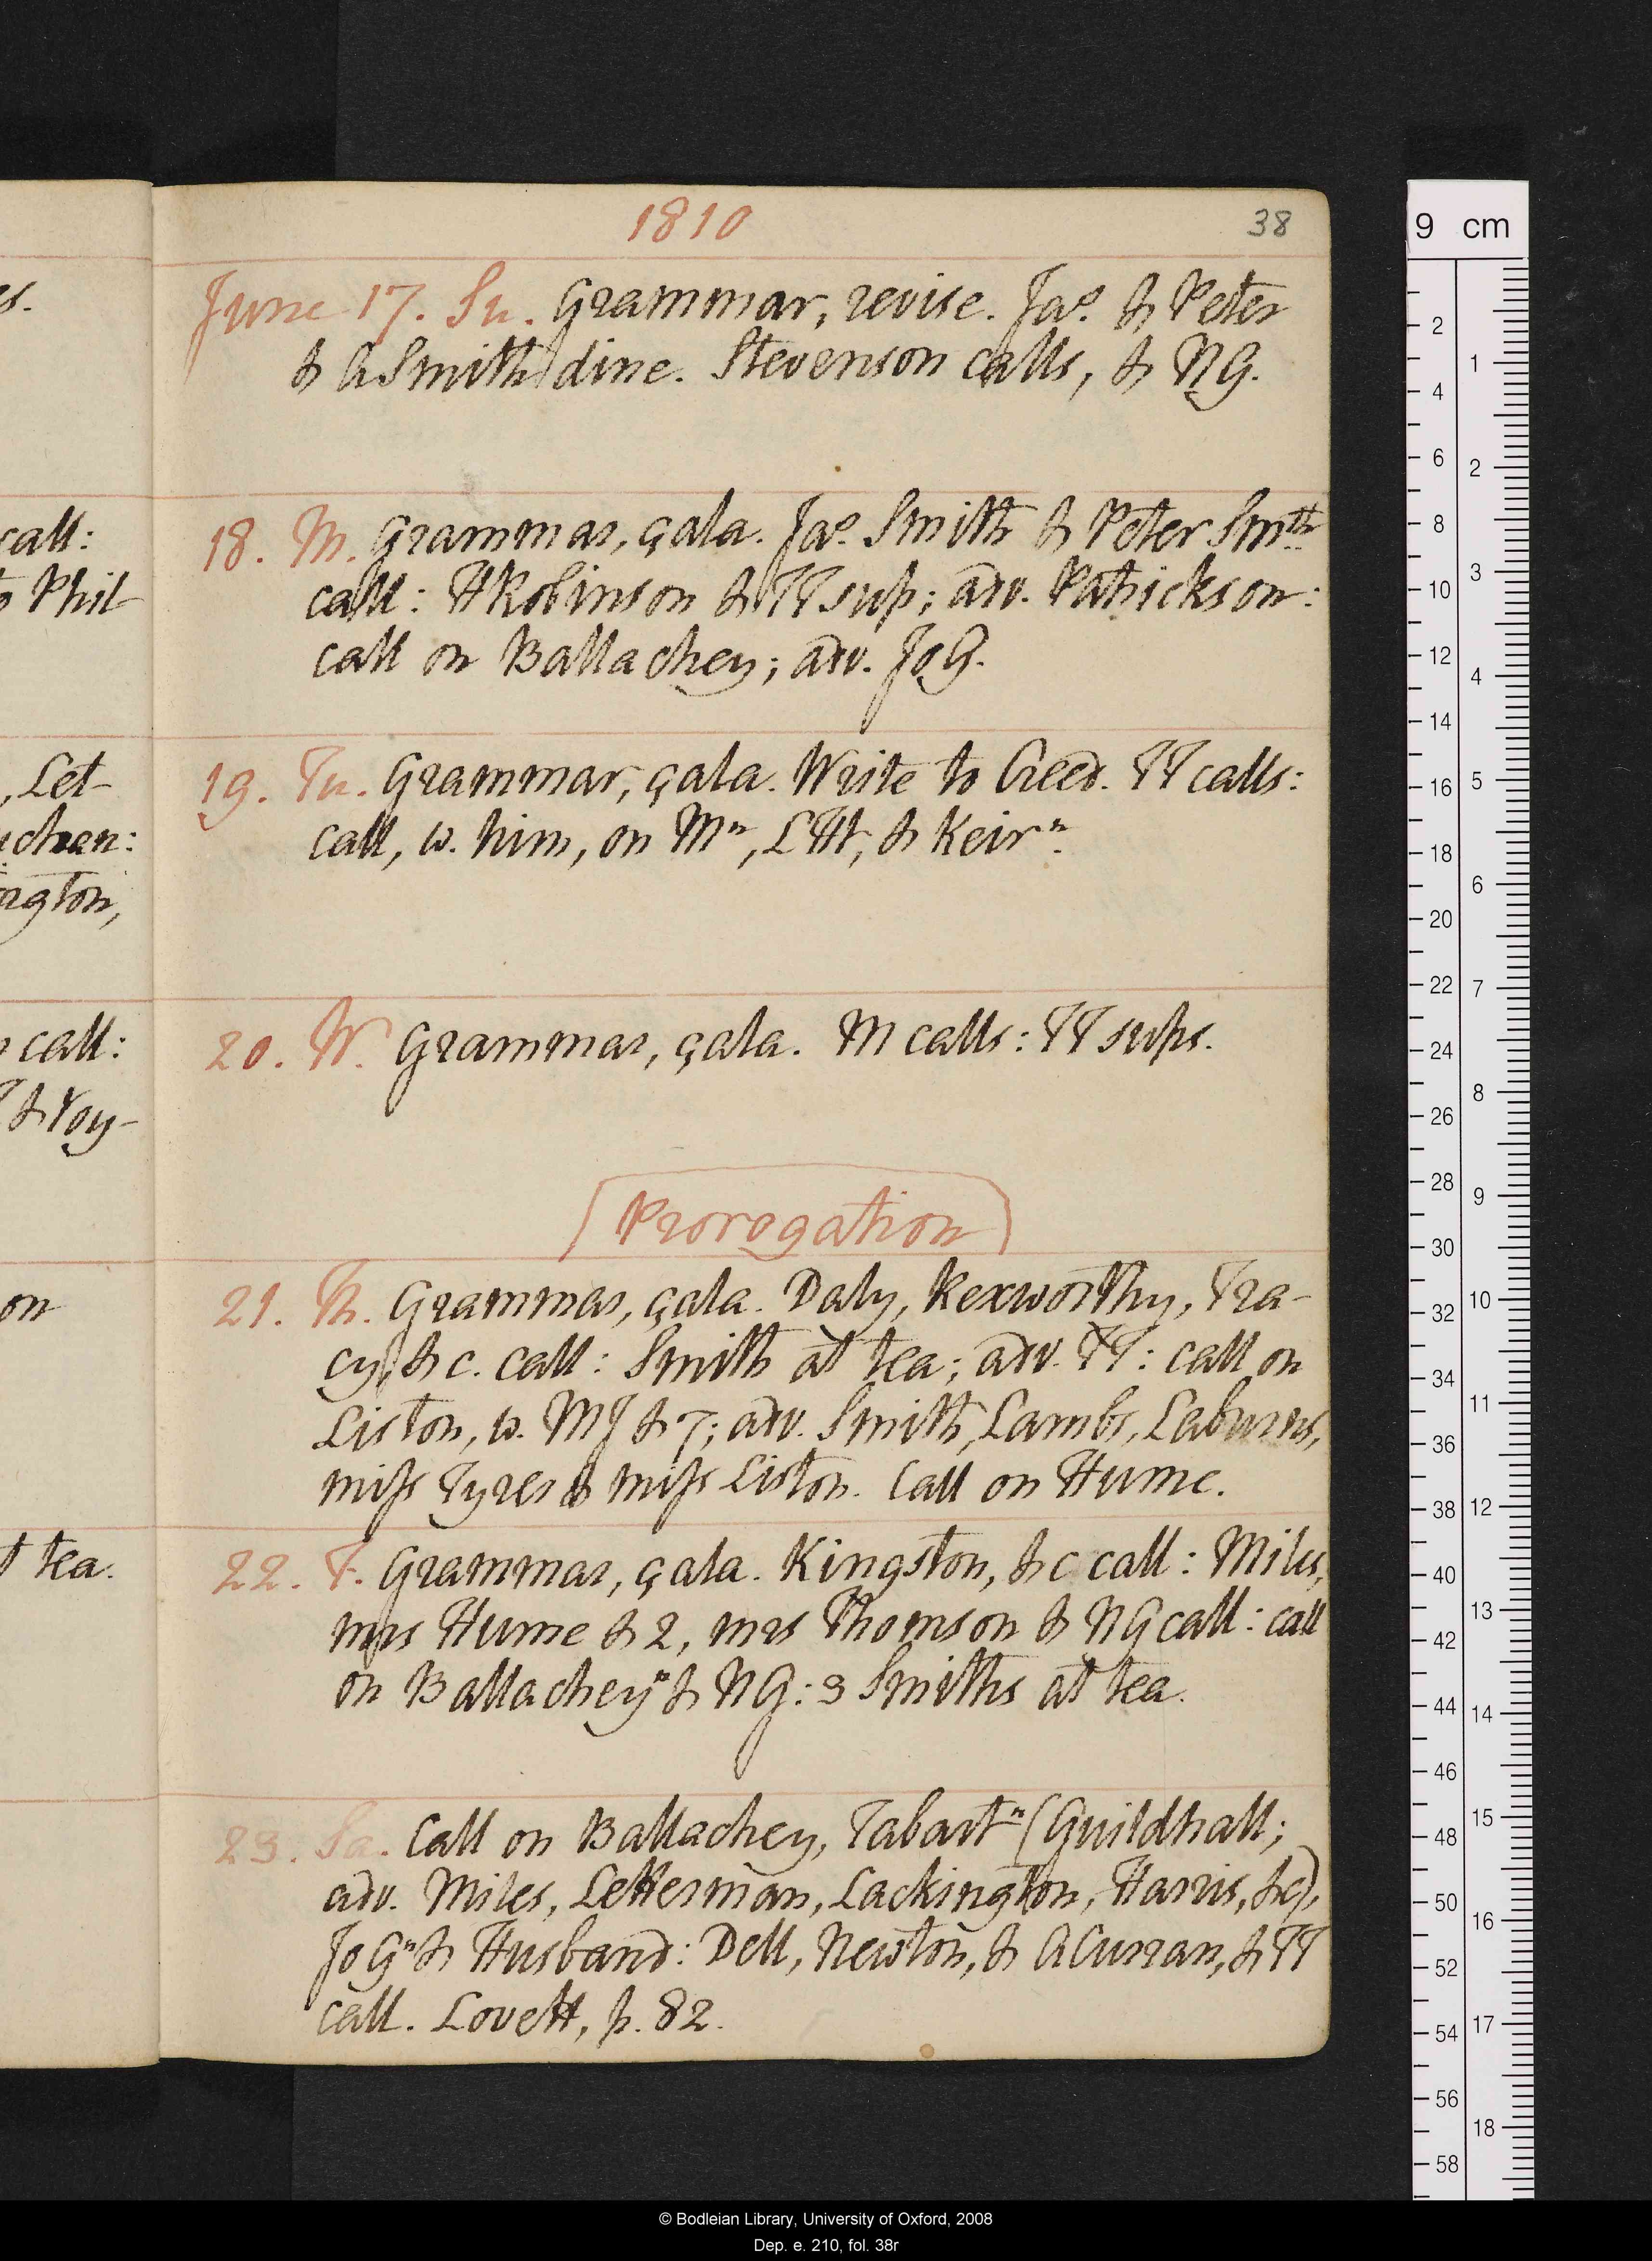 1810
38
June 17. Su. Grammar, revise. Jas. & Peter
& A Smith dine. Stevenson calls, & NG.
18. M. Grammar, çala. Jas. Smith & Peter Smth
call: H Robinson & TT sup; adv. Patrickson:
call on Ballachey; adv. JoG.
19. Tu. Grammar, çala. Write to Creed. TT calls:
call, w. him, on Mn, LHt, & Keirn.
20. W. Grammar, çala. M calls: TT sups.
Prorogation
21. Th. Grammar, çala. Daly, Kexworthy, Tra-
cy, & c. call: Smith at tea; adv. TT: call on
Liston, w. MJ & T; adv. Smith, Lambs, Laburns,
miss Tyrer & miss Liston. Call on Hume.
22. F. Grammar, çala. Kingston, &c call: Miles,
mrs Hume & 2, mrs Thomson & NG call: call
on Ballacheyn & NG: 3 Smiths at tea.
23. Sa. Call on Ballachey, Tabartn (Guildhall;
adv. Miles, Letterman, Lackington, Harris, &c),
JoGn & Husband: Dell, Newton, & A Curran, & TT
call. Lovett, p. 82.
es.
call:
Phil
, Let-
chen:
ngton,
call:
& Voy-
on
t tea.
9 cm
2
4
6
8
10
12
14
16
18
20
22
24
26
28
30
32
34
36
38
40
42
44
46
48
50
52
54
56
58
1
2
3
4
5
6
7
8
9
10
11
12
13
14
15
16
17
18
© Bodleian Library, University of Oxford, 2008
Dep. e. 210, fol. 38r